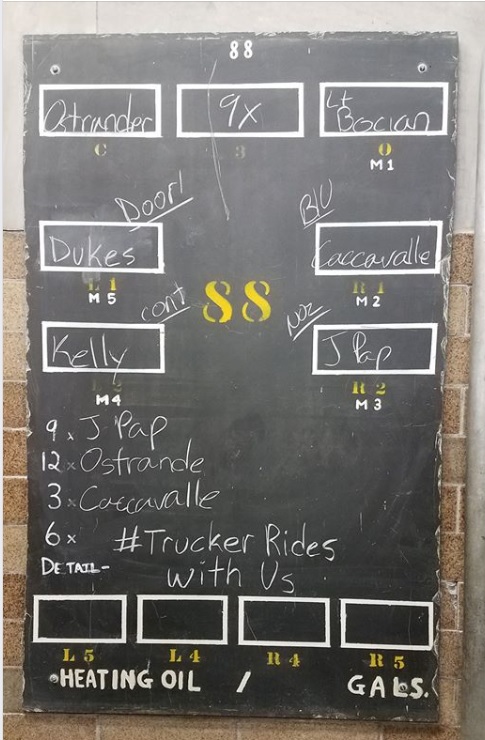 88
Ostrander 9x Lt Bocian
C 3 O
M1
Door1 BU
Dukes Caccavalle
L 1 R 1
M5 88 M2
cont Noz
Kelly J Pap
L 2 R 2
M4 M3
9 x J Pap
12 x Ostrande
3 x Caccavalle
6 x #Trucker Rides
DETAIL- with Us
L 5 L 4 R 4 R 5
HEATING OIL / GALS.